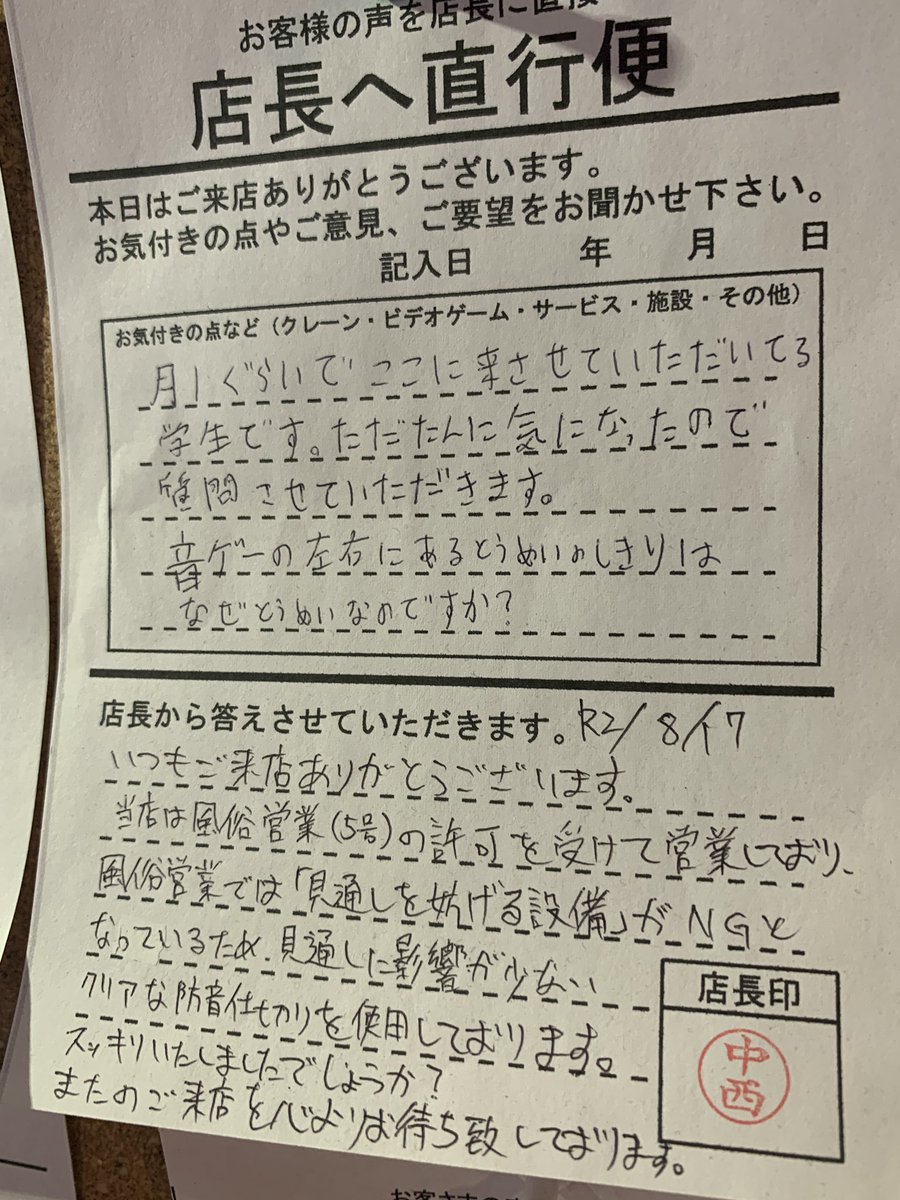 お客様の声を店長に直接
店長へ直行便
本日はご来店ありがとうございます。
お気付きの点やご意見、ご要望をお聞かせ下さい。
記入日 年 月 日
お気付きの点など（クレーン・ビデオゲーム・サービス・施設・その他）
月1ぐらいでここに来させていただいてる
学生です。ただたんに気になったので
質問させていただきます。
音ゲーの左右にあるとうめいのしきりは
なぜとうめいなのですか？
店長から答えさせていただきます。R2/8/17
いつもご来店ありがとうございます。
当店は風俗営業(5号)の許可を受けて営業しており、
風俗営業では「見通しを妨げる設備」がNGと
なっているため、見通しに影響が少ない
クリアな防音仕切りを使用しております。
スッキリいたしましたでしょうか？
またのご来店を心よりお待ち致しております。
店長印
中西